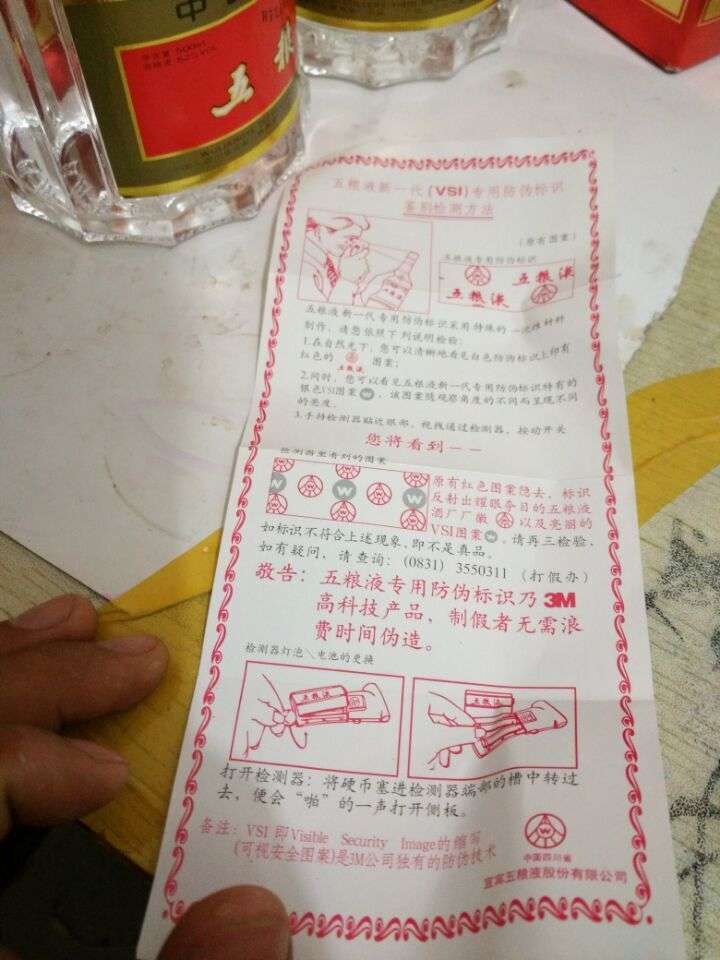 中
净含量 500ml
酒精度 52%VOL
五粮
五粮液新一代(VSI)专用防伪标识
鉴别检测方法
(原有图案)
五粮液专用防伪标识
五粮液
五粮液
五粮液新一代专用防伪标识采用特殊的一次性材料
制作，请您依照下列说明检验：
1.在自然光下，您可以清晰地看见白色防伪标识上印有
红色的 图案；
五粮液
2.同时，您可以看见五粮液新一代专用防伪标识特有的
银色VSI图案W，该图案随观察角度的不同而呈现不同
的亮度．
3.手持检测器贴近眼部，视线通过检测器，按动开关
您将看到——
检测器里看到的图案
原有红色图案隐去，标识
反射出耀眼夺目的五粮液
酒厂厂徽 以及亮丽的
VSI图案W。请再三检验，
如标识不符合上述现象，即不是真品。
如有疑问，请查询：(0831) 3550311 (打假办)
敬告：五粮液专用防伪标识乃3M
高科技产品，制假者无需浪
费时间伪造。
检测器灯泡＼电池的更换
五粮液
五粮液
打开检测器：将硬币塞进检测器端部的槽中转过
去，便会“啪”的一声打开侧板。
备注：VSI 即Visible Security Image的缩写
(可视安全图案)是3M公司独有的防伪技术
中国四川省
宜宾五粮液股份有限公司